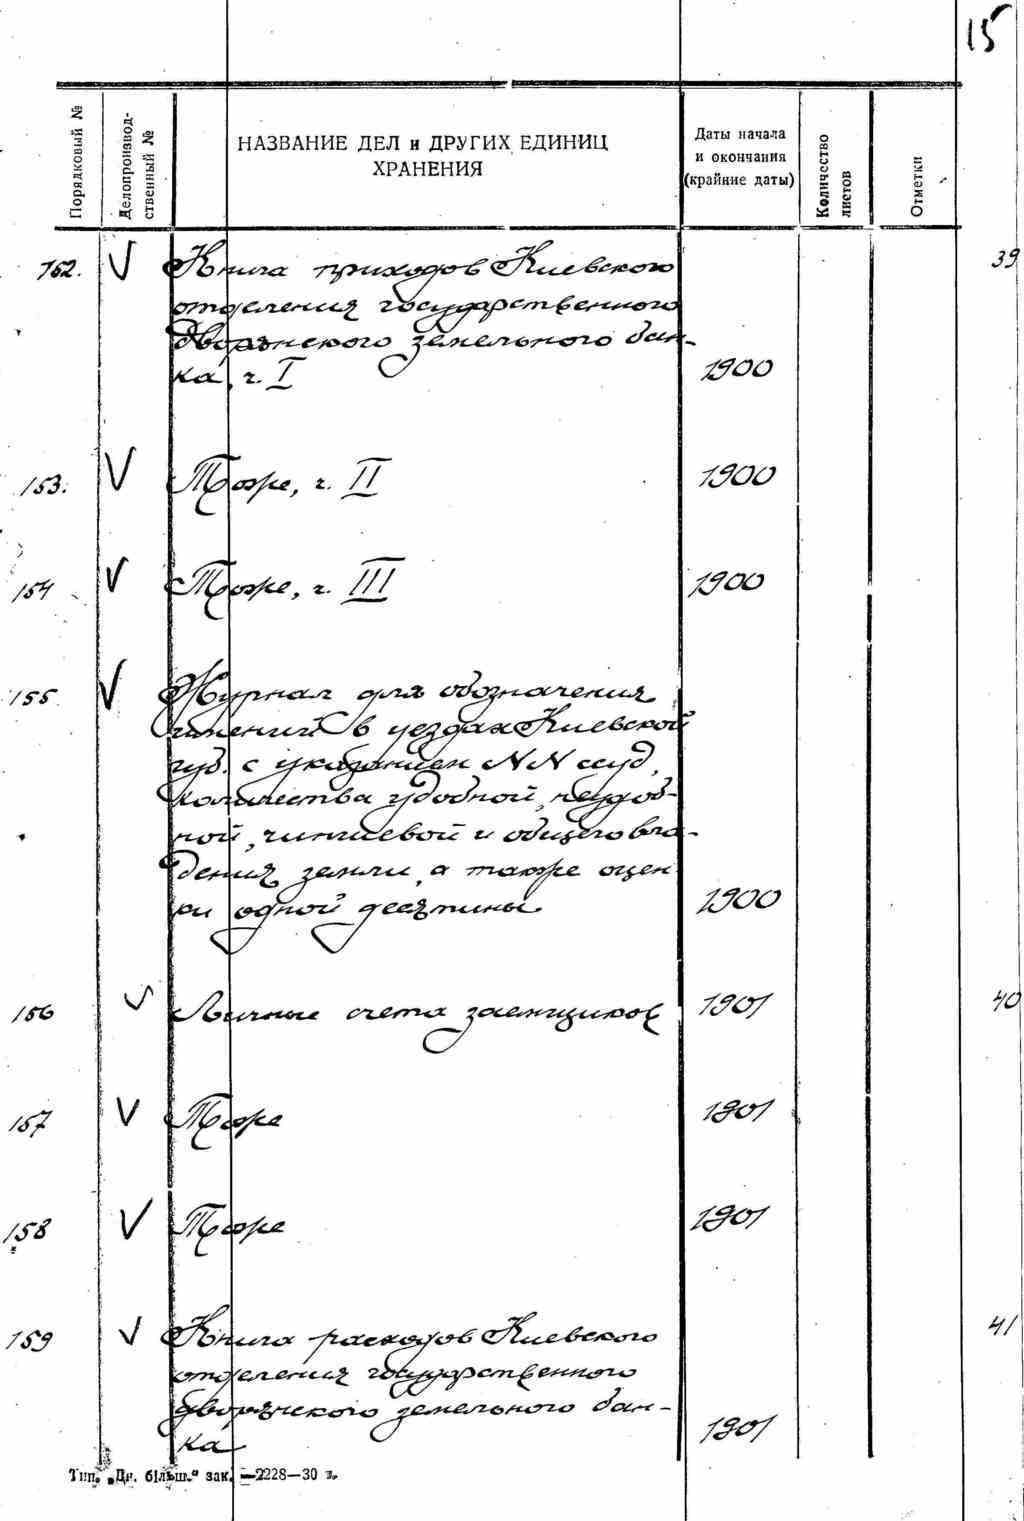 15
Порядковый №
Делопроизвод-
ственный №
НАЗВАНИЕ ДЕЛ и ДРУГИХ ЕДИНИЦ
ХРАНЕНИЯ
Даты начала
и окончания
(крайние даты)
Количество
листов
Отметки
152. V Книга приходов Киевского 39
отделения государственного
дворянского земельного бан-
ка, ч. I 1900
153. V Тоже, ч. II 1900
154 V Тоже, ч. III 1900
155 V Журнал для обозначения
имений в уездах Киевской
губ. с указанием NN ссуд,
количества удобной, неудоб-
ной, чиншевой и общего вла-
дения земли, а также оцен
ки одной десятины 1900
156 V Личные счета заемщиков 1901 40
157 V Тоже 1901
158 V Тоже 1901
159 V Книга расходов Киевского 41
отделения государственного
дворянского земельного бан-
ка 1901
Тип. „Дн. більш.“ зак. —2228—30 т.